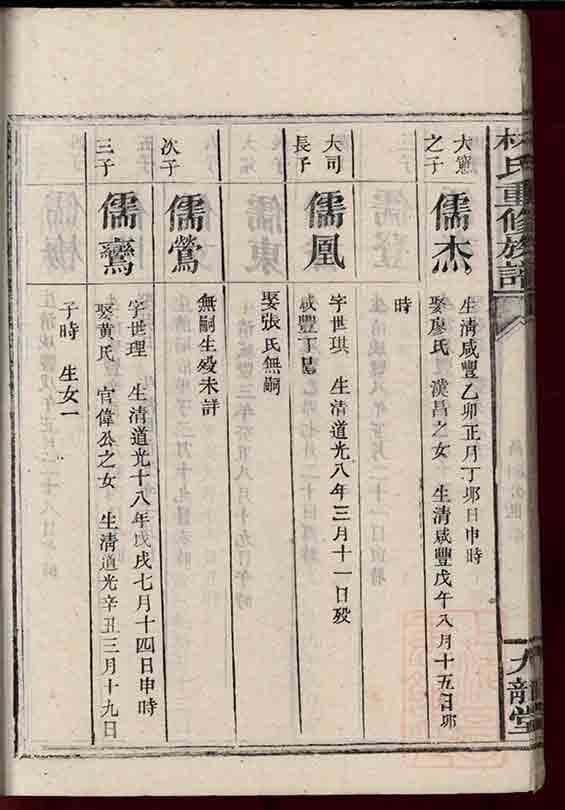 林氏重修族譜
九龍堂
大寬之子
儒杰
生清咸豐乙卯正月丁卯日申時
娶廖氏 漢昌之女 生清咸豐戊午八月十五日卯
時
大司長子
儒凰
字世琪 生清道光八年三月十一日歿
咸豐丁巳
娶張氏無嗣
次子
儒鶯
無嗣生歿未詳
三子
儒鸞
字世理 生清道光十八年戊戌七月十四日申時
娶黄氏 官偉公之女 生清道光辛丑三月十九日
子時 生女一